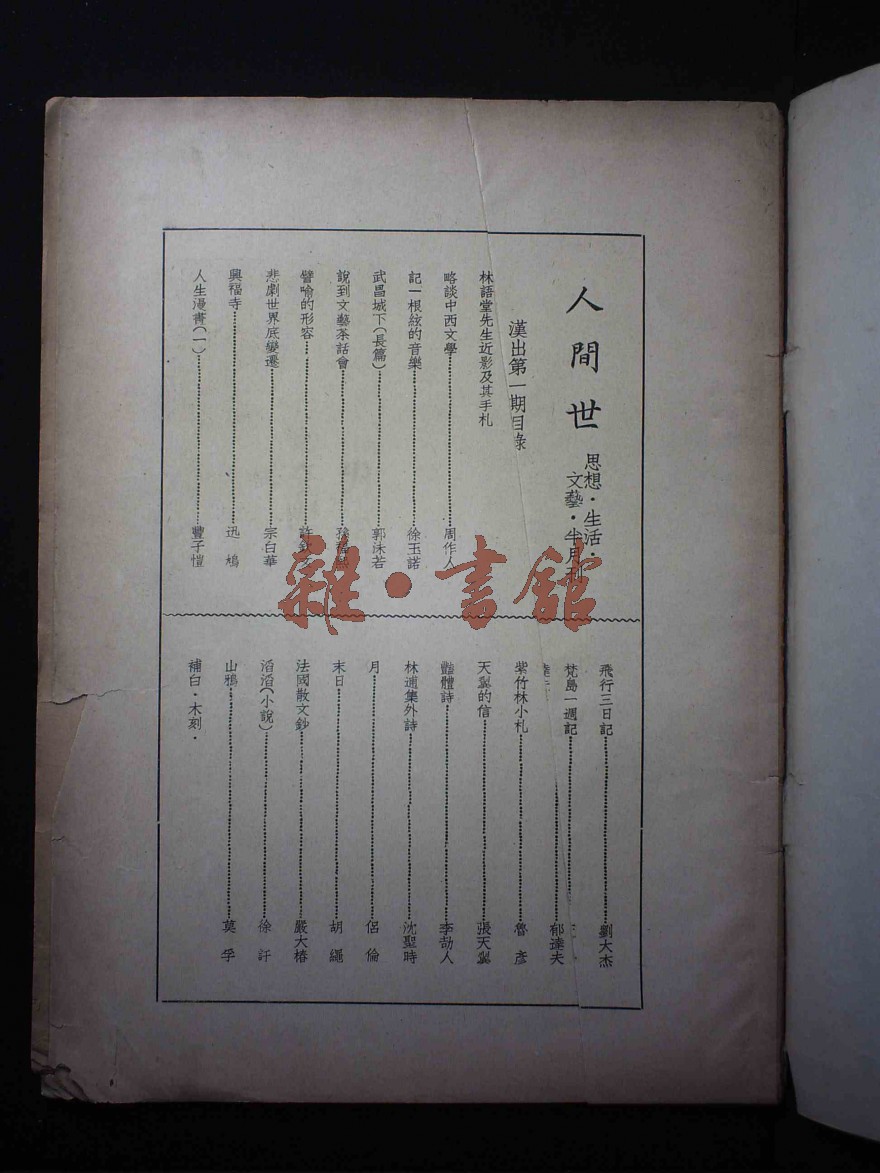 人間世
思想・生活・
文藝・半月刊
漢出第一期目錄
林語堂先生近影及其手札
略談中西文學……周作人
記一根絃的音樂……徐玉諾
武昌城下(長篇)……郭沫若
說到文藝茶話會……孫福
譬喻的形容……許
悲劇世界底變遷……宗白華
興福寺……迅鳩
人生漫畫(一)……豐子愷
飛行三日記……劉大杰
梵島一週記……
……郁達夫
紫竹林小札……魯彥
天翼的信……張天翼
豔體詩……李劼人
林逋集外詩……沈聖時
月……侶倫
末日……胡繩
法國散文鈔……嚴大椿
滔滔(小說)……徐訏
山鴉……莫孚
補白・木刻・
雜・書館